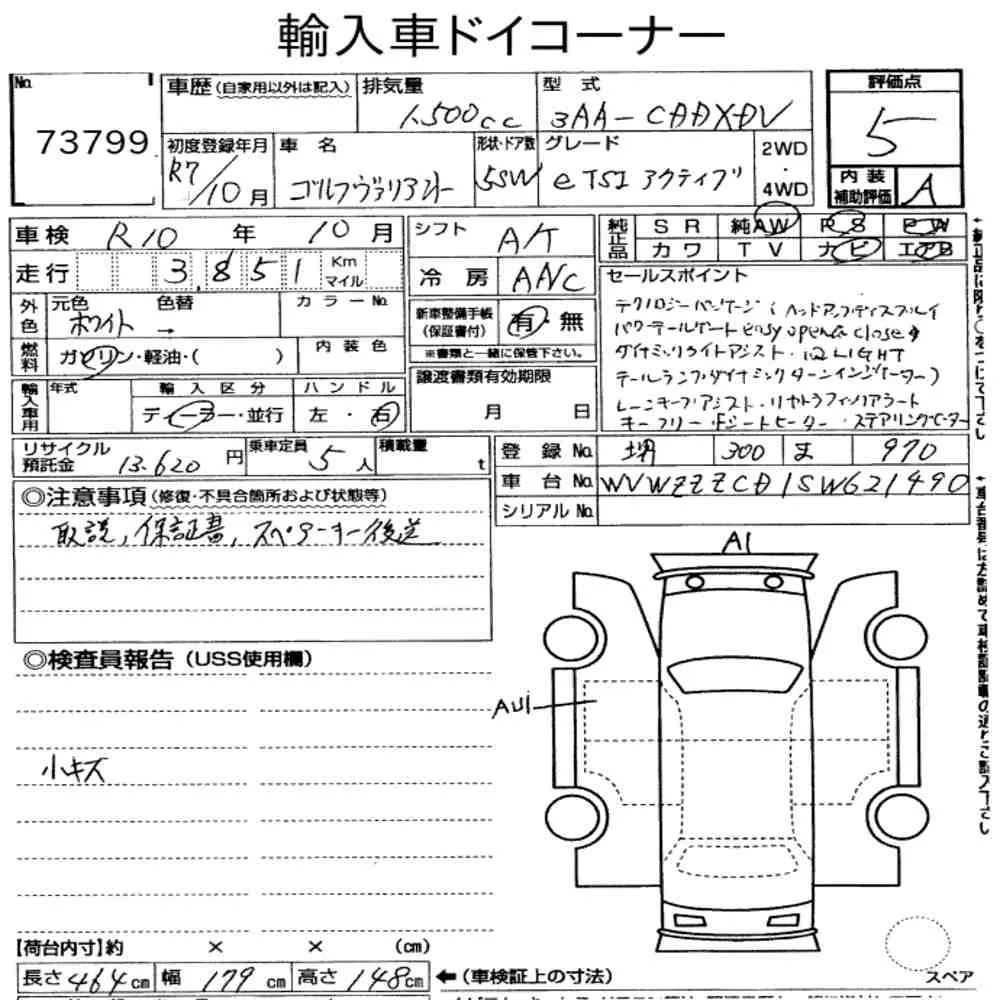 輸入車ドイコーナー
No. 73799
車歴(自家用以外は記入) 排気量 1,500cc 型式 3AA-CDDXDV
初度登録年月 R7/10月 車名 ゴルフヴァリアント 形状・ドア数 5SW グレード eTSI アクティブ 2WD 4WD
評価点 5
内装補助評価 A
車検 R10年 10月 シフト A/T
純正品 SR 純AW PS PW
カワ TV ナビ エアB
走行 3,851 Km マイル 冷房 ANC
セールスポイント
テクノロジーパッケージ (ヘッドアップディスプレイ
パワーテールゲート easy open & close
ダイナミックライトアシスト・IQ LIGHT
テールランプ/ダイナミックターンインジケーター)
レーンキープアシスト・リヤトラフィックアラート
キーフリー・Fシートヒーター・ステアリングヒーター
外色 元色 色替 カラーNo.
ホワイト →
新車整備手帳(保証書付) 有・無
※書類と一緒に保管下さい。
燃料 ガソリン・軽油・( ) 内装色
輸入車用 年式 輸入区分 ハンドル
ディーラー・並行 左・右
譲渡書類有効期限
月 日
リサイクル預託金 13,620円 乗車定員 5人 積載量 t
登録No. 堺 300 ま 970
車台No. WVWZZZCD1SW621490
シリアルNo.
◎注意事項(修復・不具合箇所および状態等)
取説, 保証書, スペアーキー後送
◎検査員報告(USS使用欄)
小キズ
A1
AU1
スペア
【荷台内寸】約 × × (cm)
長さ 464cm 幅 179cm 高さ 148cm ←(車検証上の寸法)